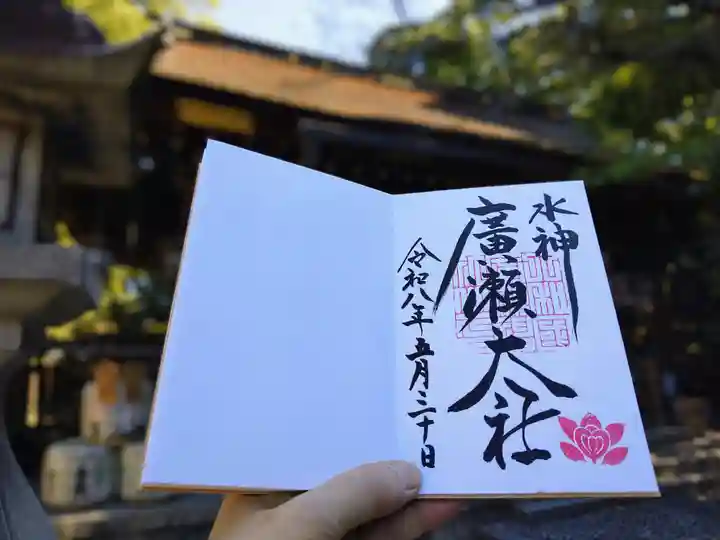 水神
廣瀬大社
令和八年五月三十日